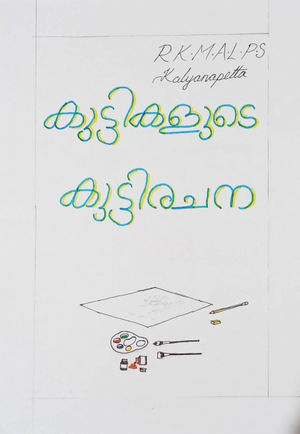 R.K.M.A.L.P.S
Kalyanapetta
കുട്ടികളുടെ
കുട്ടിരചന